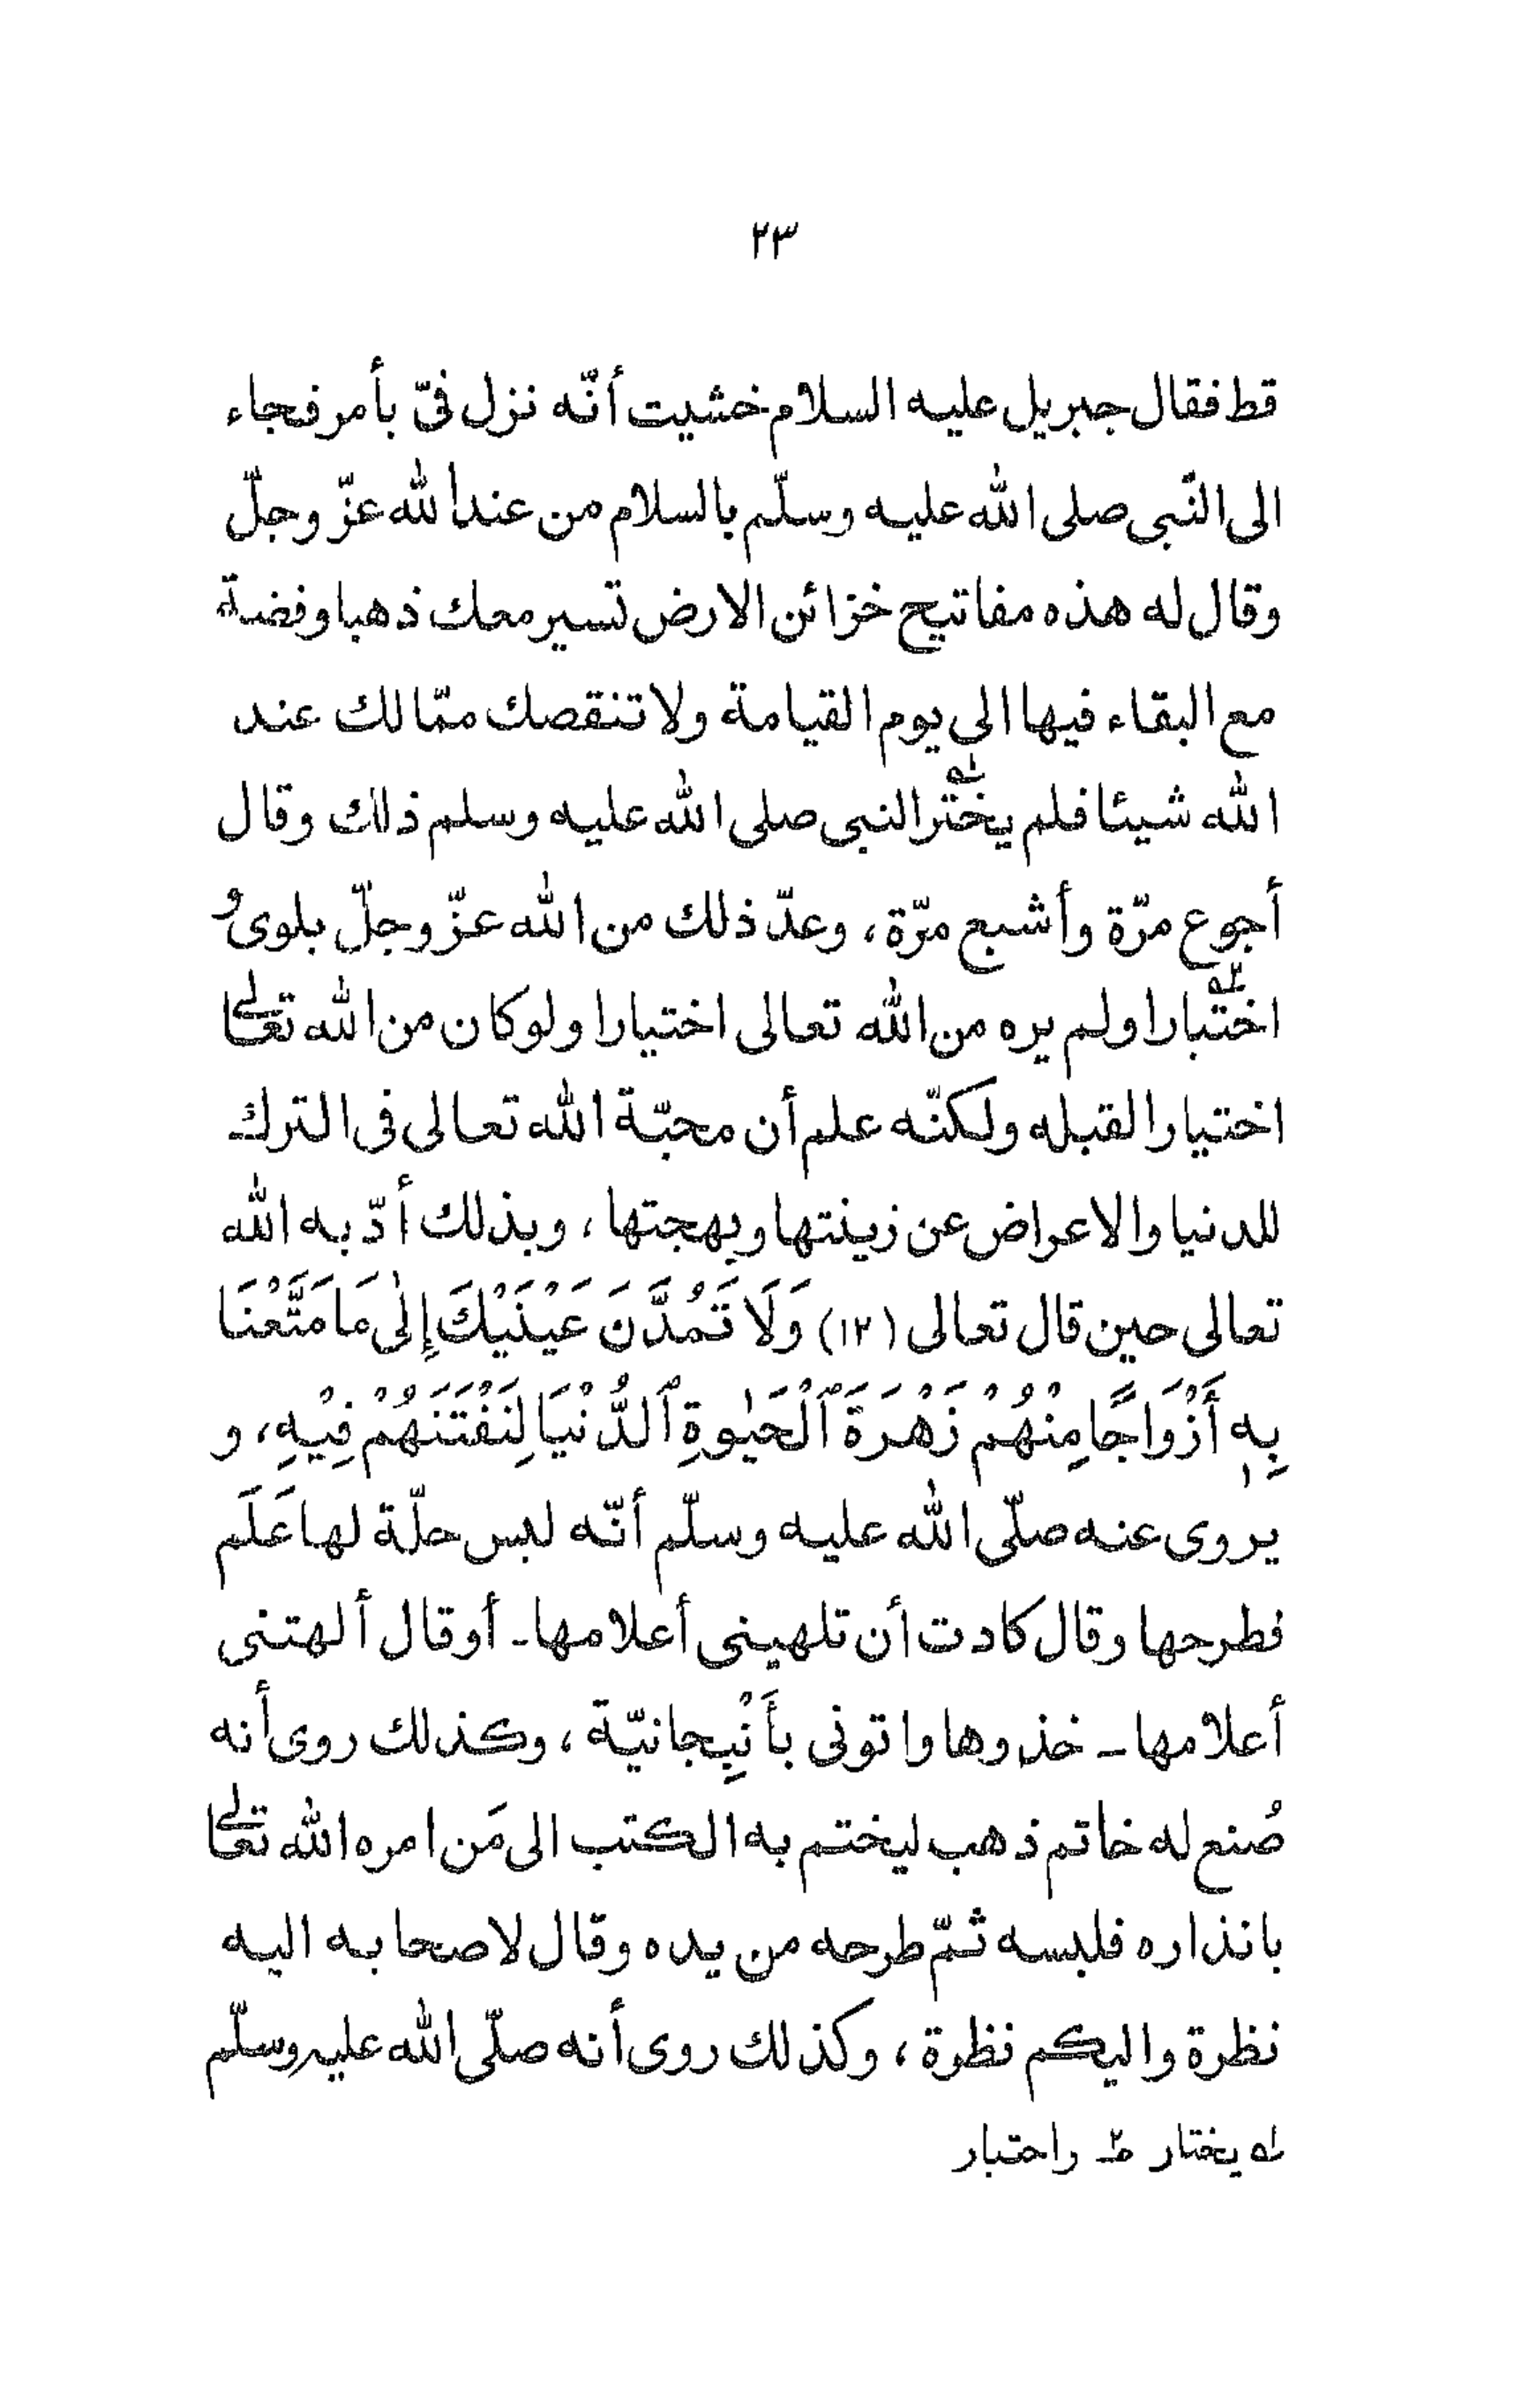 ٢٣
قط فقال جبريل عليه السلام خشيت أنّه نزل فىّ بأمر فجاء
الى النّبى صلى الله عليه وسلّم بالسلام من عند الله عزّ وجلّ
وقال له هذه مفاتيح خزائن الارض تسير معك ذهبا وفضة
مع البقاء فيها الى يوم القيامة ولا تنقصك ممّا لك عند
الله شيئا فلم يختر له النبى صلى الله عليه وسلم ذلك وقال
أجوع مرّة وأشبع مرّة، وعدّ ذلك من الله عزّ وجلّ بلوىُ
اختبارا ٢ه ولم يره من الله تعالى اختيارا ولو كان من الله تعالى
اختيارا لقبله ولكنّه علم أن محبّة الله تعالى فى الترك
للدنيا والاعراض عن زينتها وبهجتها، وبذلك أدّبه الله
تعالى حين قال تعالى (١٢) وَلَا تَمُدَّنَ عَيْنَيْكَ إِلٰى مَا مَتَّعْنَا
بِهٖ أَزْوَاجًا مِنْهُمْ زَهْرَةَ ٱلْحَيٰوةِ ٱلدُّنْيَا لِنَفْتَنَهُمْ فِيْهِ، و
يروى عنه صلّى الله عليه وسلّم أنّه لبس حلّة لها عَلَم
فطرحها وقال كادت أن تلهينى أعلامها۔ أو قال ألهتنى
أعلامها۔ خذوها واتونى بأَنْبِجانيّة، وكذلك روى أنه
صُنع له خاتم ذهب ليختم به الكتب الى مَن امره الله تعالى
بانذاره فلبسه ثمّ طرحه من يده وقال لاصحابه اليه
نظرة واليكم نظرة، وكذلك روى أنه صلّى الله عليه وسلّم
له يختار ٢ه واحتبار